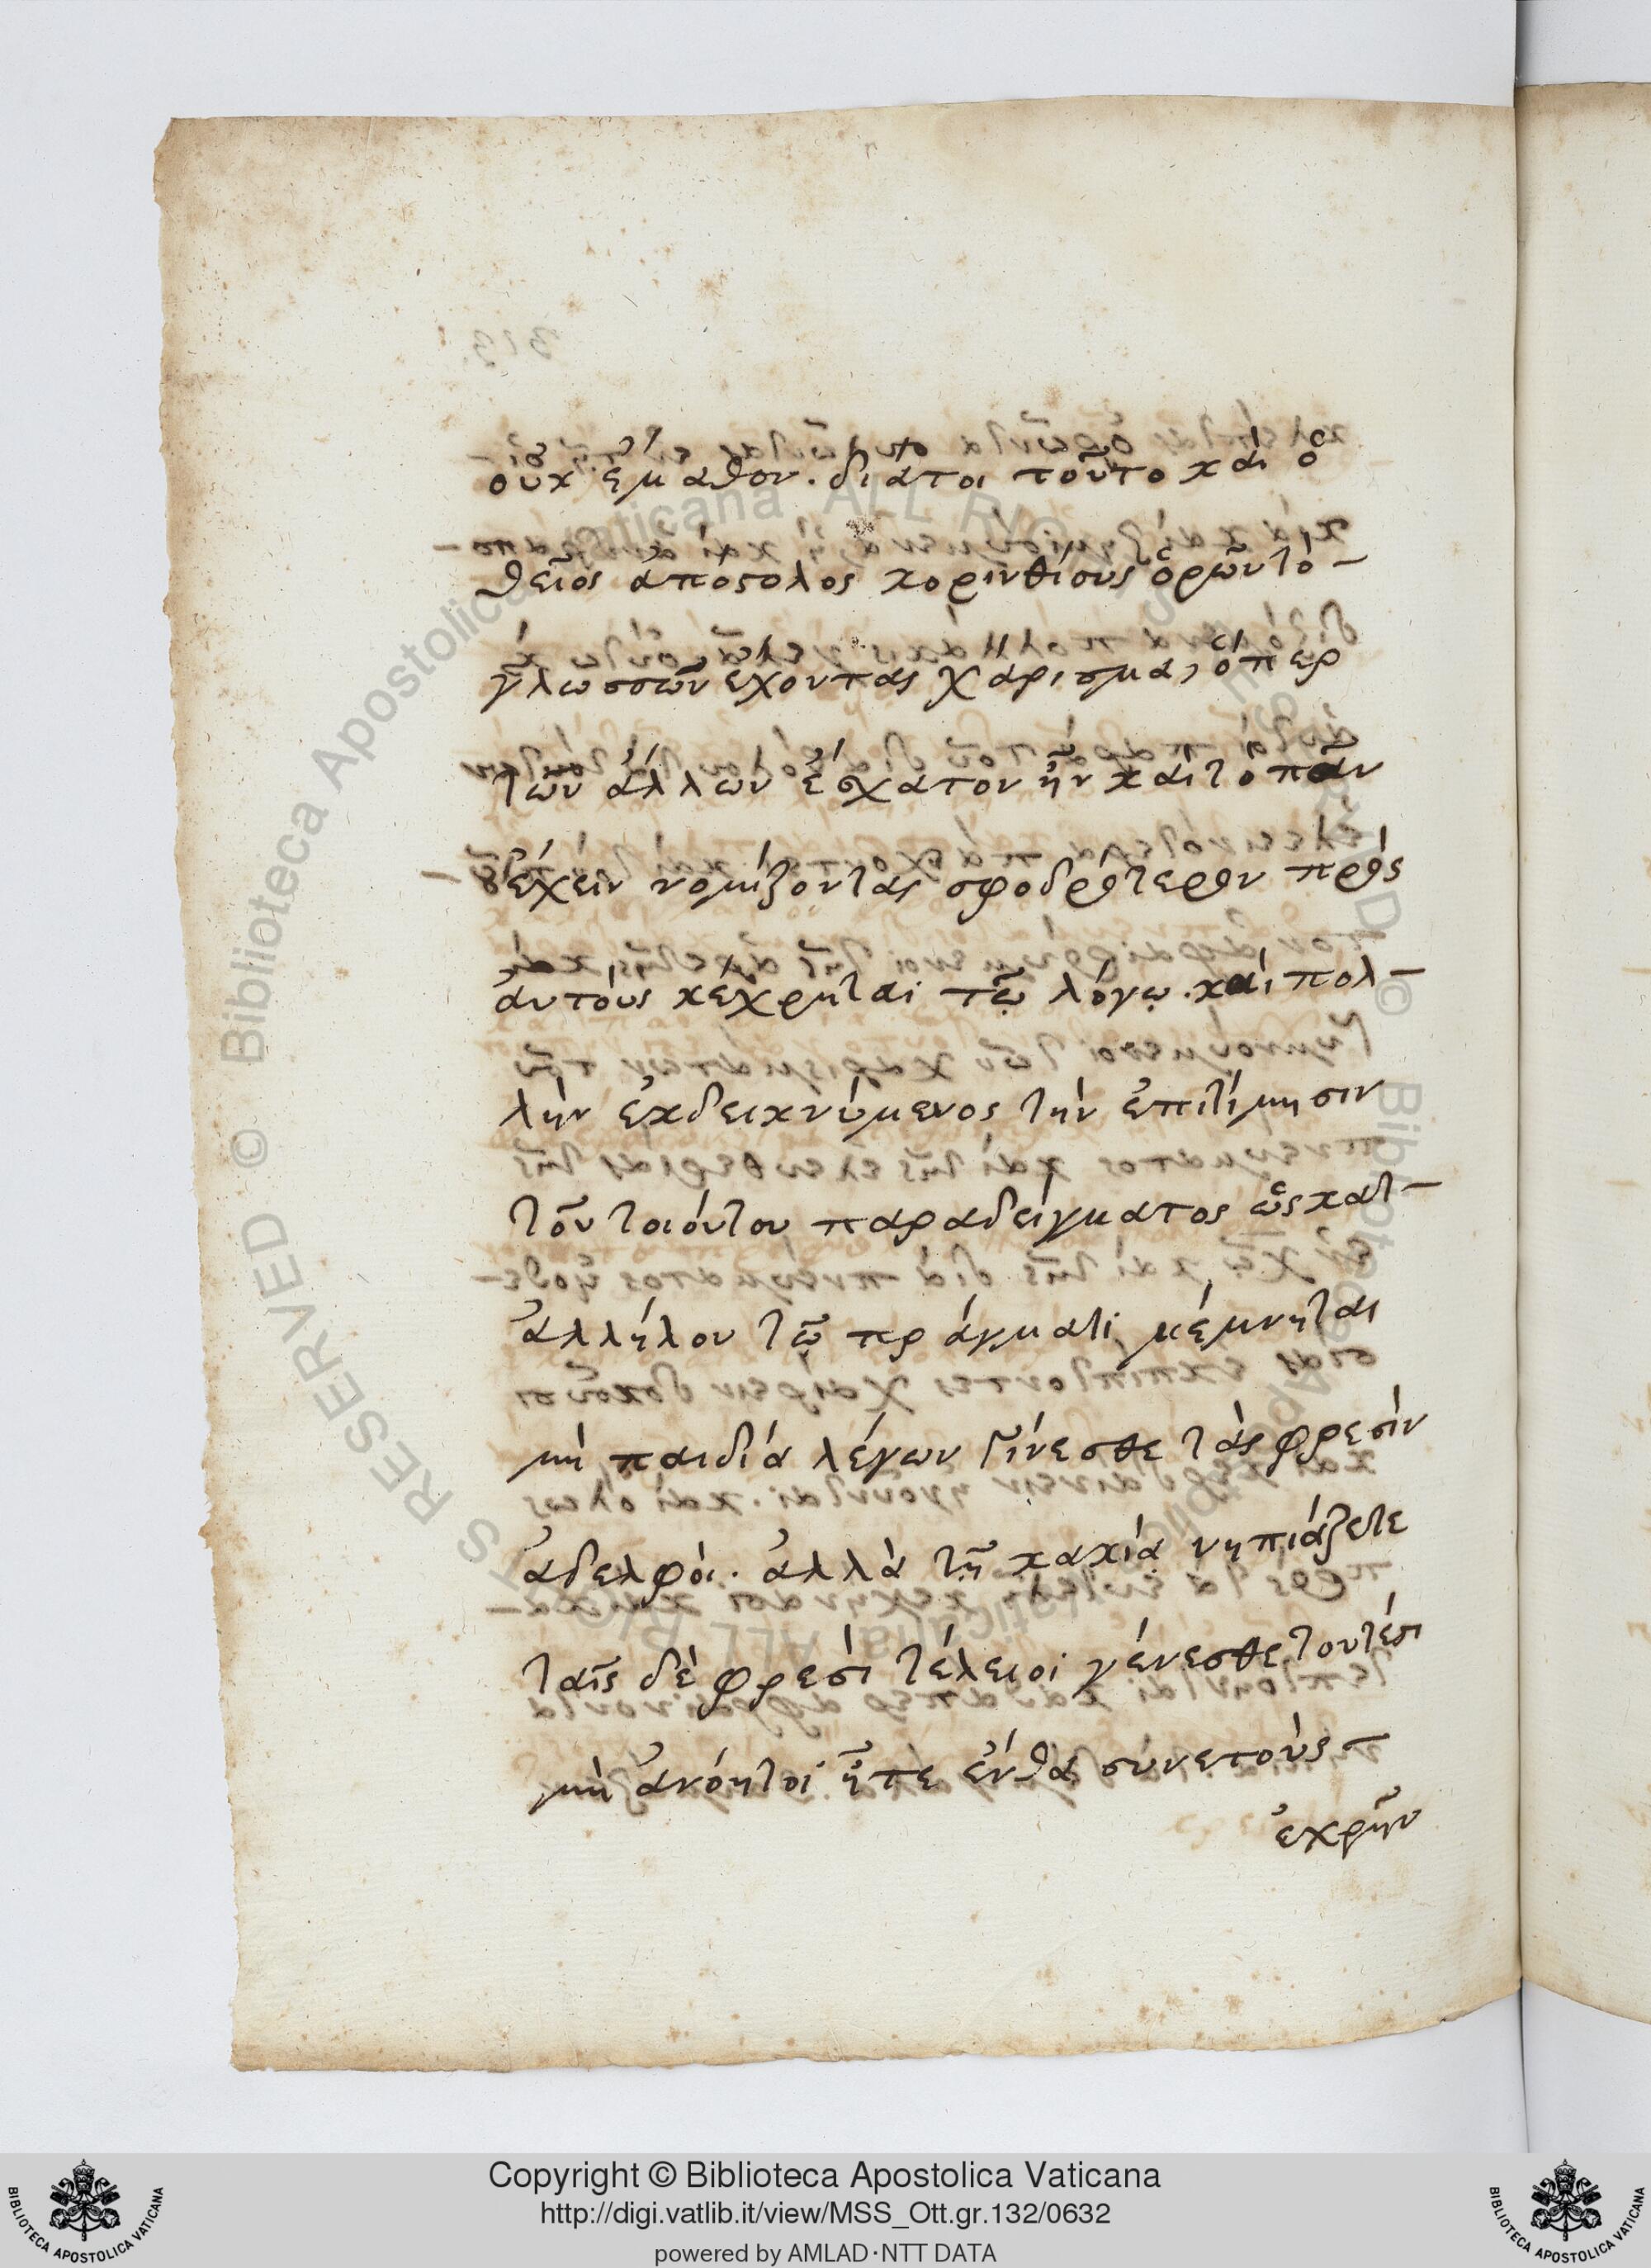 οὐκ ἔμαθον. διάτοι τοῦτο καὶ ὁ
θεῖος ἀπόστολος κορινθίους ὁρῶν τὸ -
γλωσσῶν ἔχοντας χάρισμα, ὅπερ
τῶν ἄλλων ἔσχατον ἦν καὶ τὸ πᾶν
ἔχειν νομίζοντας σφοδρότερον πρὸς
ἀυτοὺς κέχρηται τῷ λόγῳ. καὶ πολ-
λὴν ἐκδεικνύμενος τὴν ἐπιτίμησιν
τοῦ τοιόυτου παραδείγματος ὡς κατ-
ἀλλήλου τῷ πράγματι μέμνηται
μὴ παιδία λέγων γίνεσθε τὰς φρεσὶν
ἀδελφοὶ. ἀλλὰ τῇ κακίᾳ νηπιάζετε
ταῖς δὲ φρεσὶ τέλειοι γένεσθε τουτέστι
μὴ ἀνόητοι ἦτε ἔνθα συνετοὺς -
ἐχρῆν
Copyright © Biblioteca Apostolica Vaticana
http://digi.vatlib.it/view/MSS_Ott.gr.132/0632
powered by AMLAD·NTT DATA
BIBLIOTECA APOSTOLICA VATICANA
BIBLIOTECA APOSTOLICA VATICANA